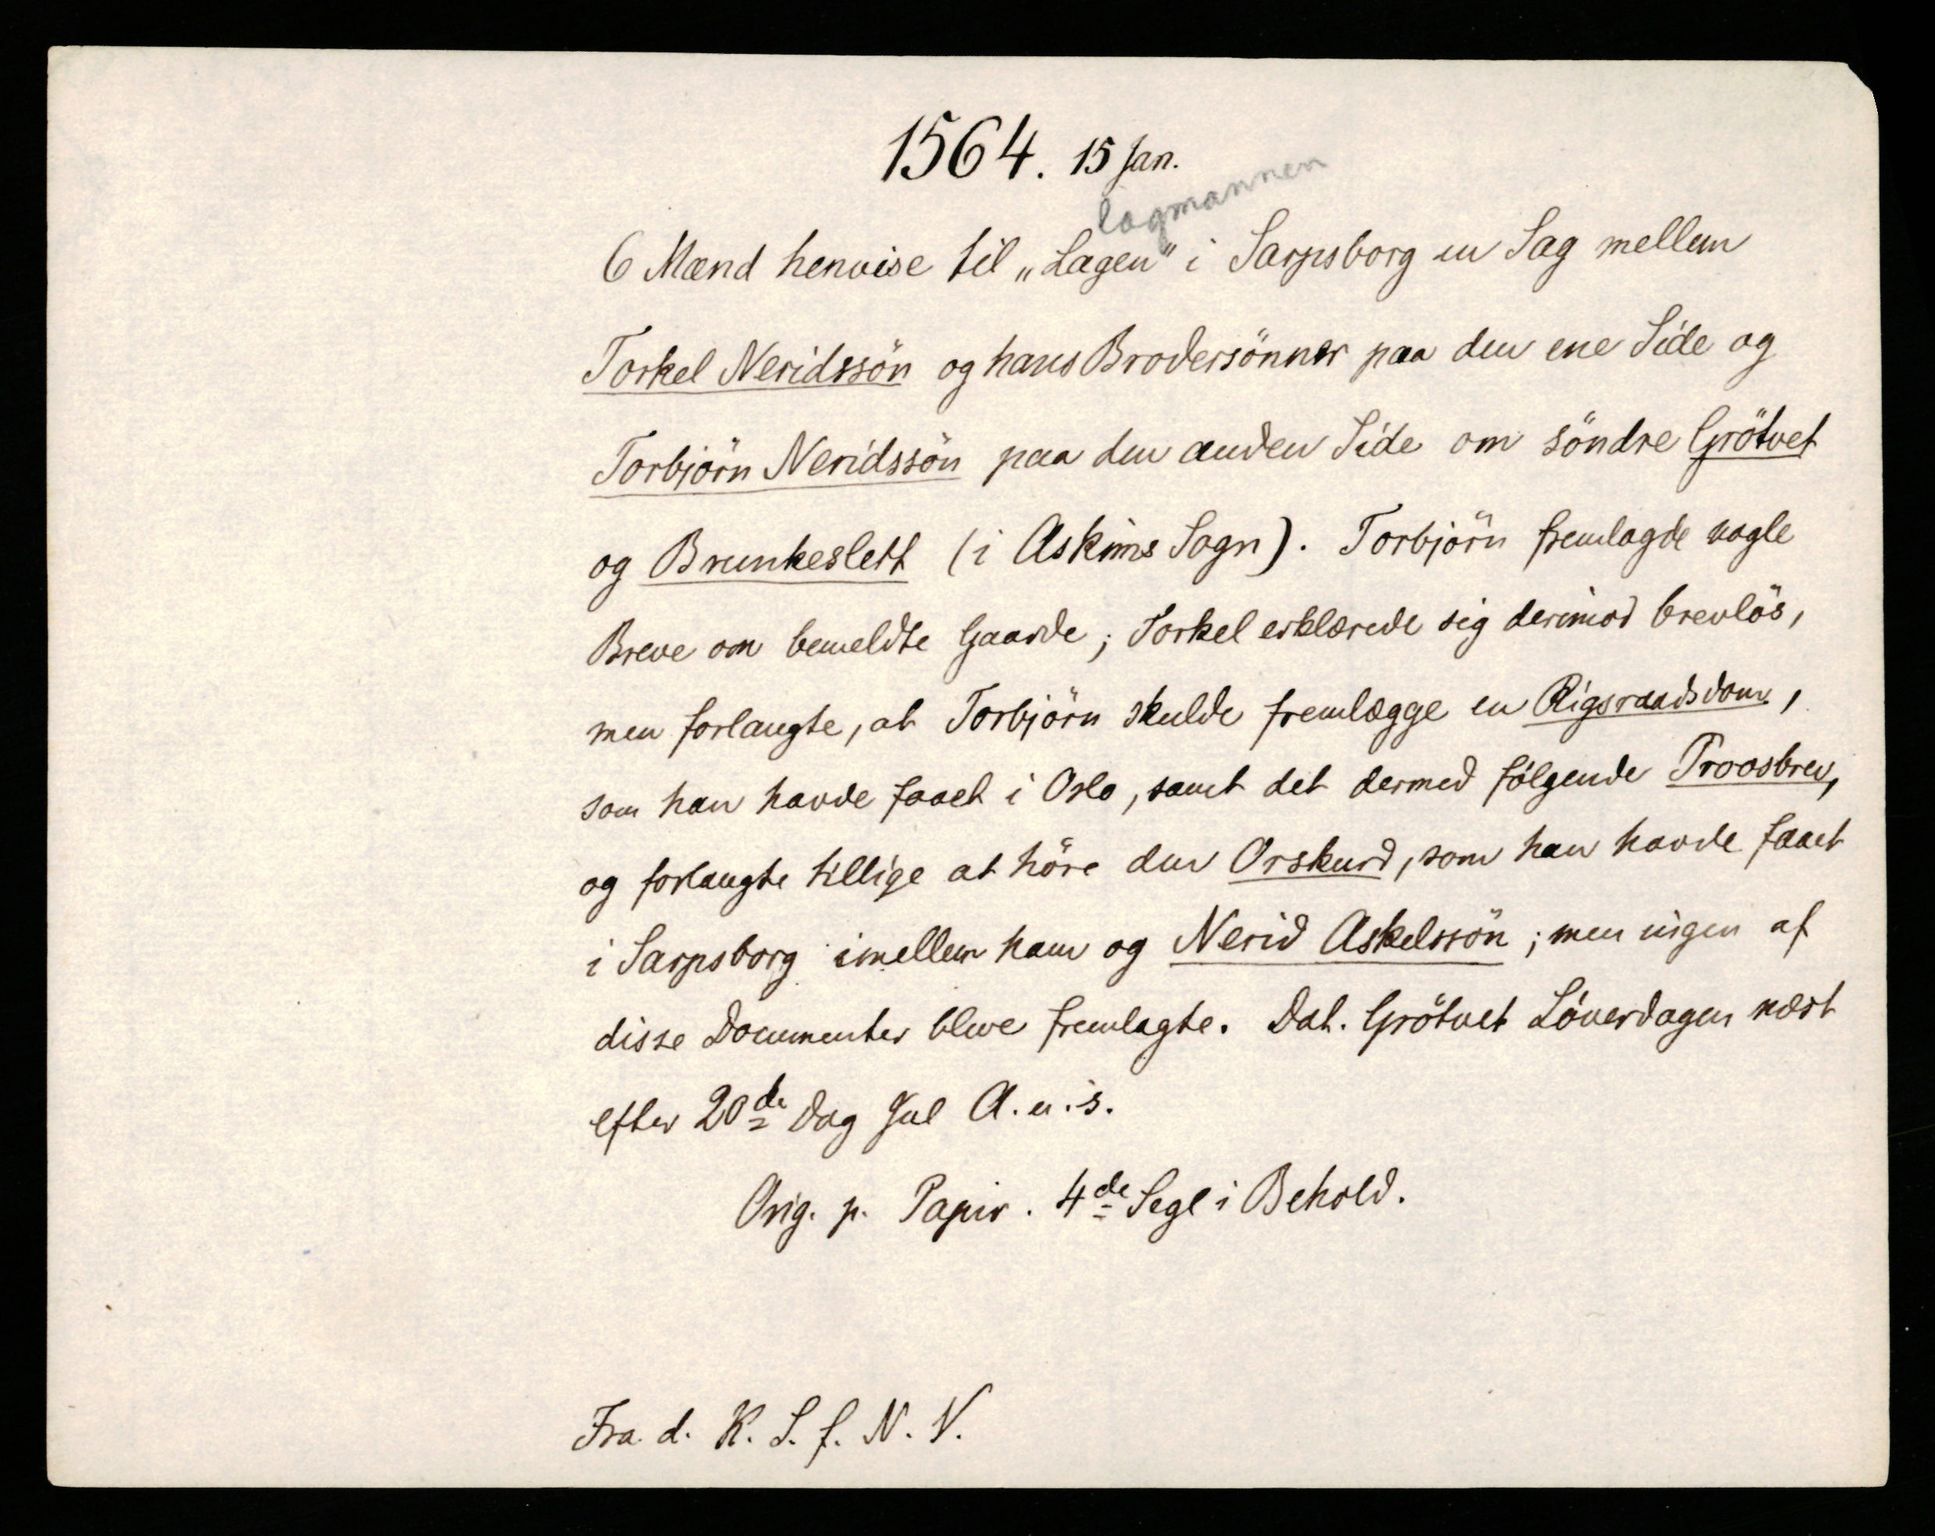 1564. 15 Jan.
lagmannen
6 Mænd henvise til „Lagen“ i Sarpsborg en Sag mellem
Torkel Neridssön og hans Brodersönner paa den ene Side og
Torbjörn Neridssön paa den anden Side om söndre Grötvet
og Brunkeslett (i Askims Sogn). Torbjörn fremlagde nogle
Breve om bemeldte Gaarde; Torkel erklærede sig derimod brevlös,
men forlangte, at Torbjörn skulde fremlægge en Rigsraadsdom,
som han havde faaet i Oslo, samt det dermed fölgende Proosbrev,
og forlangte tillige at höre den Orskurd, som han havde faaet
i Sarpsborg imellem ham og Nerid Askelssön; men ingen af
disse Documenter bleve fremlagte. Dat. Grötvet Löverdagen næst
efter 20de Dag Jul A. u. s.
Orig. p. Papir. 4de Segl i Behold.
Fra d. K. S. f. N. V.